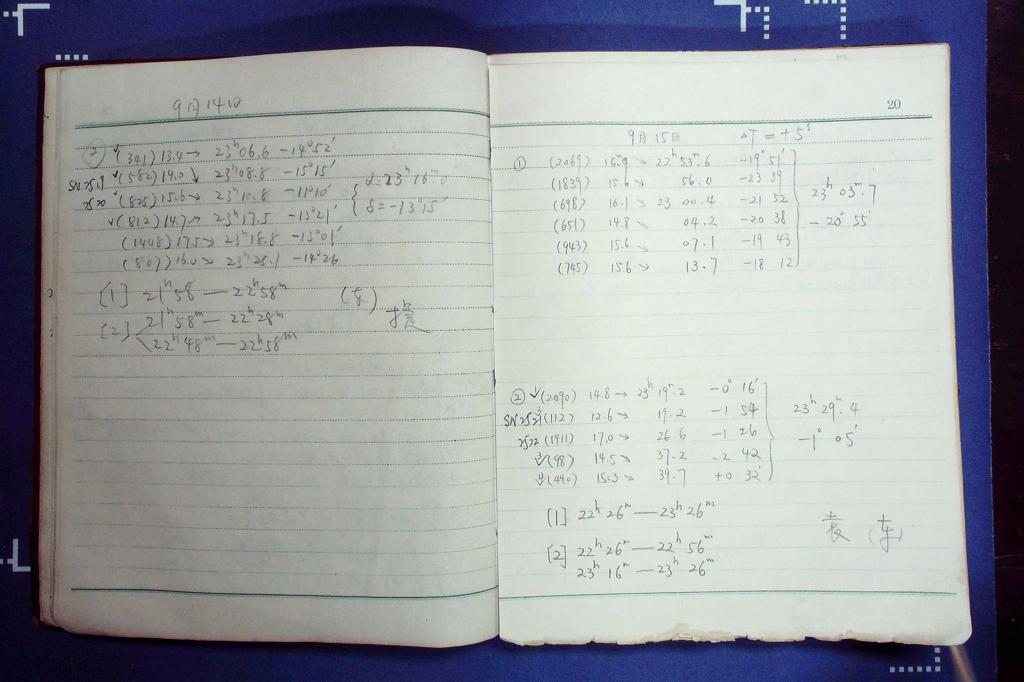 9月14日
② √(341) 13.4→ 23ʰ06.6 -14°52′
SN2519 √(582) 14.0↘ 23ʰ08.8 -15°15′
2520 √(825) 15.6→ 23ʰ10.8 -11°10′
√(812) 14.7→ 23ʰ17.5 -13°21′
(1448) 17.5→ 23ʰ18.8 -13°01′
(807) 16.0→ 23ʰ25.1 -14°26
α=23ʰ16ᵐ.0
δ=-13°15′
[1] 21ʰ58—22ʰ58ᵐ
[2] 21ʰ58ᵐ—22ʰ28ᵐ
22ʰ48ᵐ—22ʰ58ᵐ
20
9月15日 ΔT=+5ˢ
① (2069) 16.9↘ 22ʰ53ᵐ.6 -19°51′
(1839) 15.6↘ 56.0 -23 39
(698) 16.1↘ 23 00.4 -21 52
(651) 14.8 04.2 -20 38
(943) 15.6↘ 07.1 -19 43
(745) 15.6↘ 13.7 -18 12
23ʰ03ᵐ.7
-20°55′
② √(2090) 14.8→ 23ʰ19ᵐ.2 -0°16′
SN2521 (112) 12.6↘ 19.2 -1 54
2522 (1911) 17.0↘ 26.6 -1 26
(98) 14.5↘ 37.2 -2 42
(440) 15.3↘ 39.7 +0 32′
23ʰ29ᵐ.4
-1°05′
[1] 22ʰ26ᵐ—23ʰ26ᵐ
[2] 22ʰ26ᵐ—22ʰ56ᵐ
23ʰ16ᵐ—23ʰ26ᵐ
袁